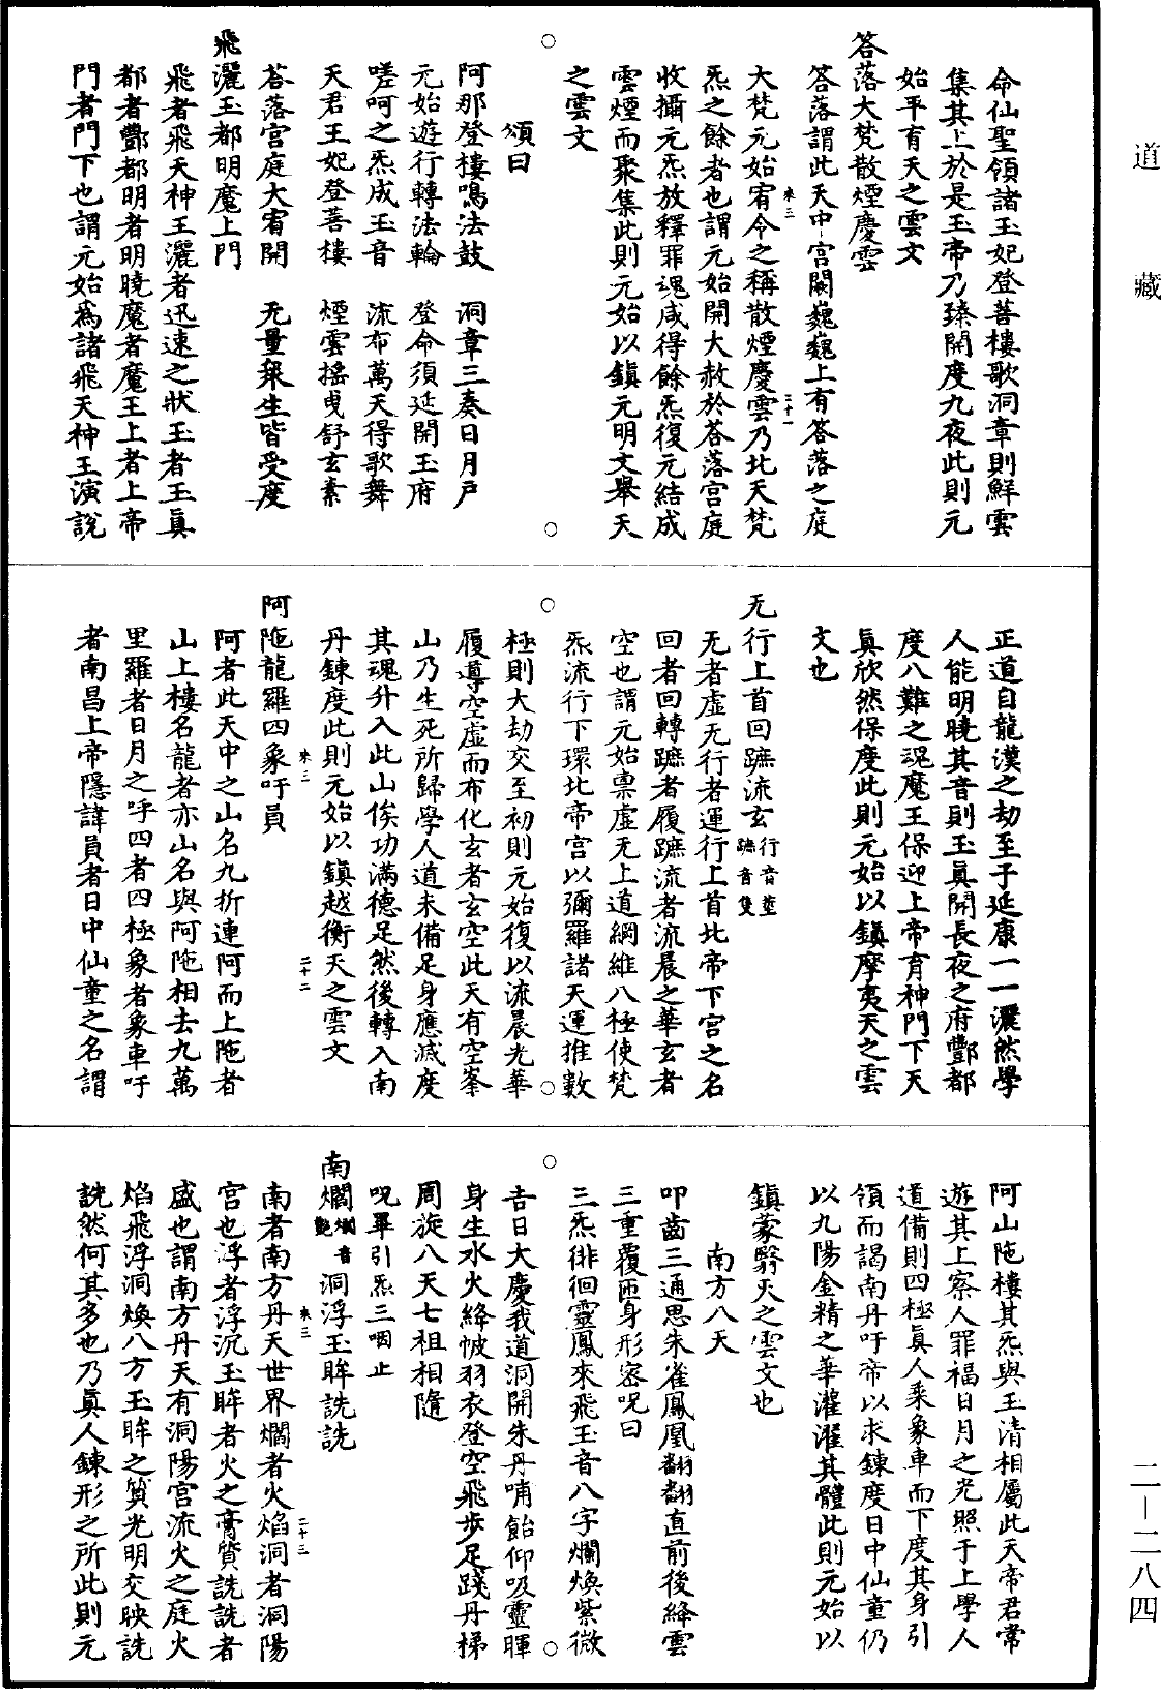 道藏
命仙聖領諸玉妃登菩樓歌洞章則鮮雲
集其上於是玉帝乃臻開度九夜此則元
始平育天之雲文
答落大梵散煙慶雲
答落謂此天中宮闕巍巍上有答落之庭
來三 二十一
大梵元始宥令之稱散煙慶雲乃比天梵
炁之餘者也謂元始開大赦於荅落宮庭
收攝元炁放釋罪魂咸得餘炁復元結成
雲煙而聚集此則元始以鎮元明文舉天
之雲文
頌曰
阿那登樓鳴法鼓 洞章三奏日月戶
元始遊行轉法輪 登命須延開玉府
嗟呵之炁成玉音 流布萬天得歌舞
天君王妃登菩樓 煙雲搖曳舒玄素
荅落宮庭大宥開 无量衆生皆受度
飛灑玉都明魔上門
飛者飛天神王灑者迅速之狀玉者王眞
都者酆都明者明曉魔者魔王上者上帝
門者門下也謂元始爲諸飛天神王演說
正道自龍漢之劫至于延康一一灑然學
人能明曉其音則玉眞開長夜之府酆都
度八難之魂魔王保迎上帝育神門下天
眞欣然保度此則元始以鎮摩夷天之雲
文也
无行上首回蹠流玄行音䔧蹠音隻
无者虛无行者運行上首比帝下宮之名
回者回轉蹠者履蹠流者流晨之華玄者
空也謂元始禀虛无上道綱維八極使梵
炁流行下環比帝宮以彌羅諸天運推數
極則大劫交至初則元始復以流晨光華
履導空虛而布化玄者玄空此天有空峯
山乃生死所歸學人道未備足身應滅度
其魂升入此山俟功滿德足然後轉入南
丹鍊度此則元始以鎮越衡天之雲文
來三 二十二
阿陁龍羅四象吁員
阿者此天中之山名九折連阿而上陁者
山上樓名龍者亦山名與阿陁相去九萬
里羅者日月之呼四者四極象者象車吁
者南昌上帝隱諱員者日中仙童之名謂
阿山陁樓其炁與玉清相屬此天帝君常
遊其上察人罪福日月之光照于上學人
道備則四極眞人乘象車而下度其身引
領而謁南丹吁帝以求鍊度日中仙童仍
以九陽金精之華灌濯其體此則元始以
鎮蒙翳天之雲文也
南方八天
叩齒三通思朱雀鳳凰翻翻直前後絳雲
三重覆匝身形密呪曰
三炁徘徊靈鳳來飛玉音八字爛煥紫微
吉日大慶我道洞開朱丹哺飴仰吸靈暉
身生水火絳帔羽衣登空飛步足踐丹梯
周旋八天七祖相隨
呪畢引炁三咽止
南爓爓音豔洞浮玉眸詵詵
來三 二十三
南者南方丹天世界爓者火焰洞者洞陽
宮也浮者浮沉玉眸者火之膏質詵詵者
盛也謂南方丹天有洞陽宮流火之庭火
焰飛浮洞煥八方玉眸之質光明交映詵
詵然何其多也乃眞人鍊形之所此則元
二—二八四